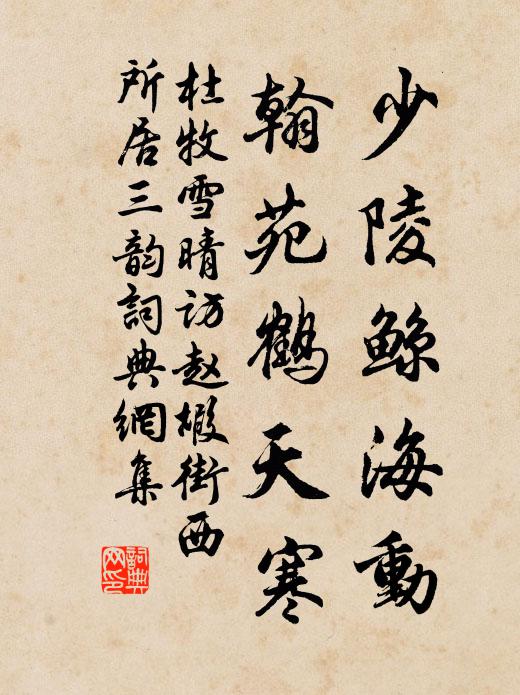 少陵鲸海動
翰苑鶴天寒
杜牧雪晴访赵嘏街西
所居三韵詞典網集
詞典网印